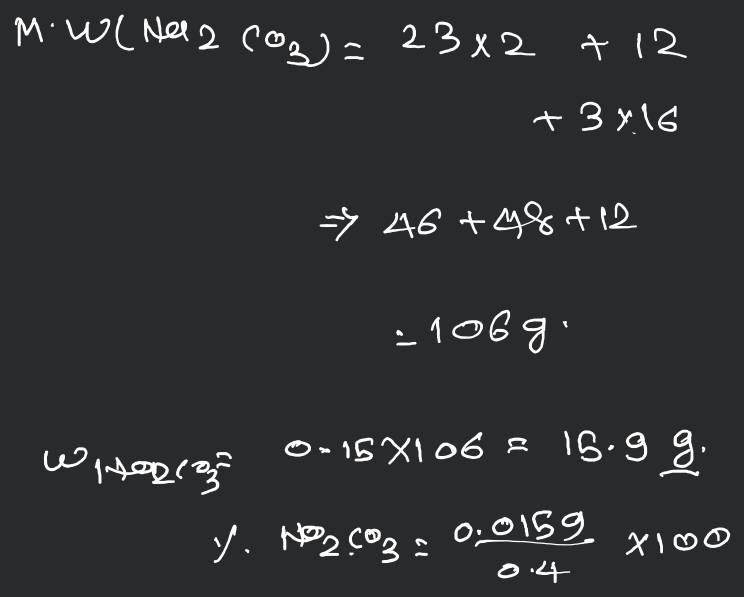 M.W(Na2 CO3) = 23x2 + 12
+ 3x16
⇒ 46 + 48 + 12
= 106 g.
W Na2CO3 = 0.15X106 = 15.9 g.
%. Na2CO3 = 0.0159 / 0.4 x100